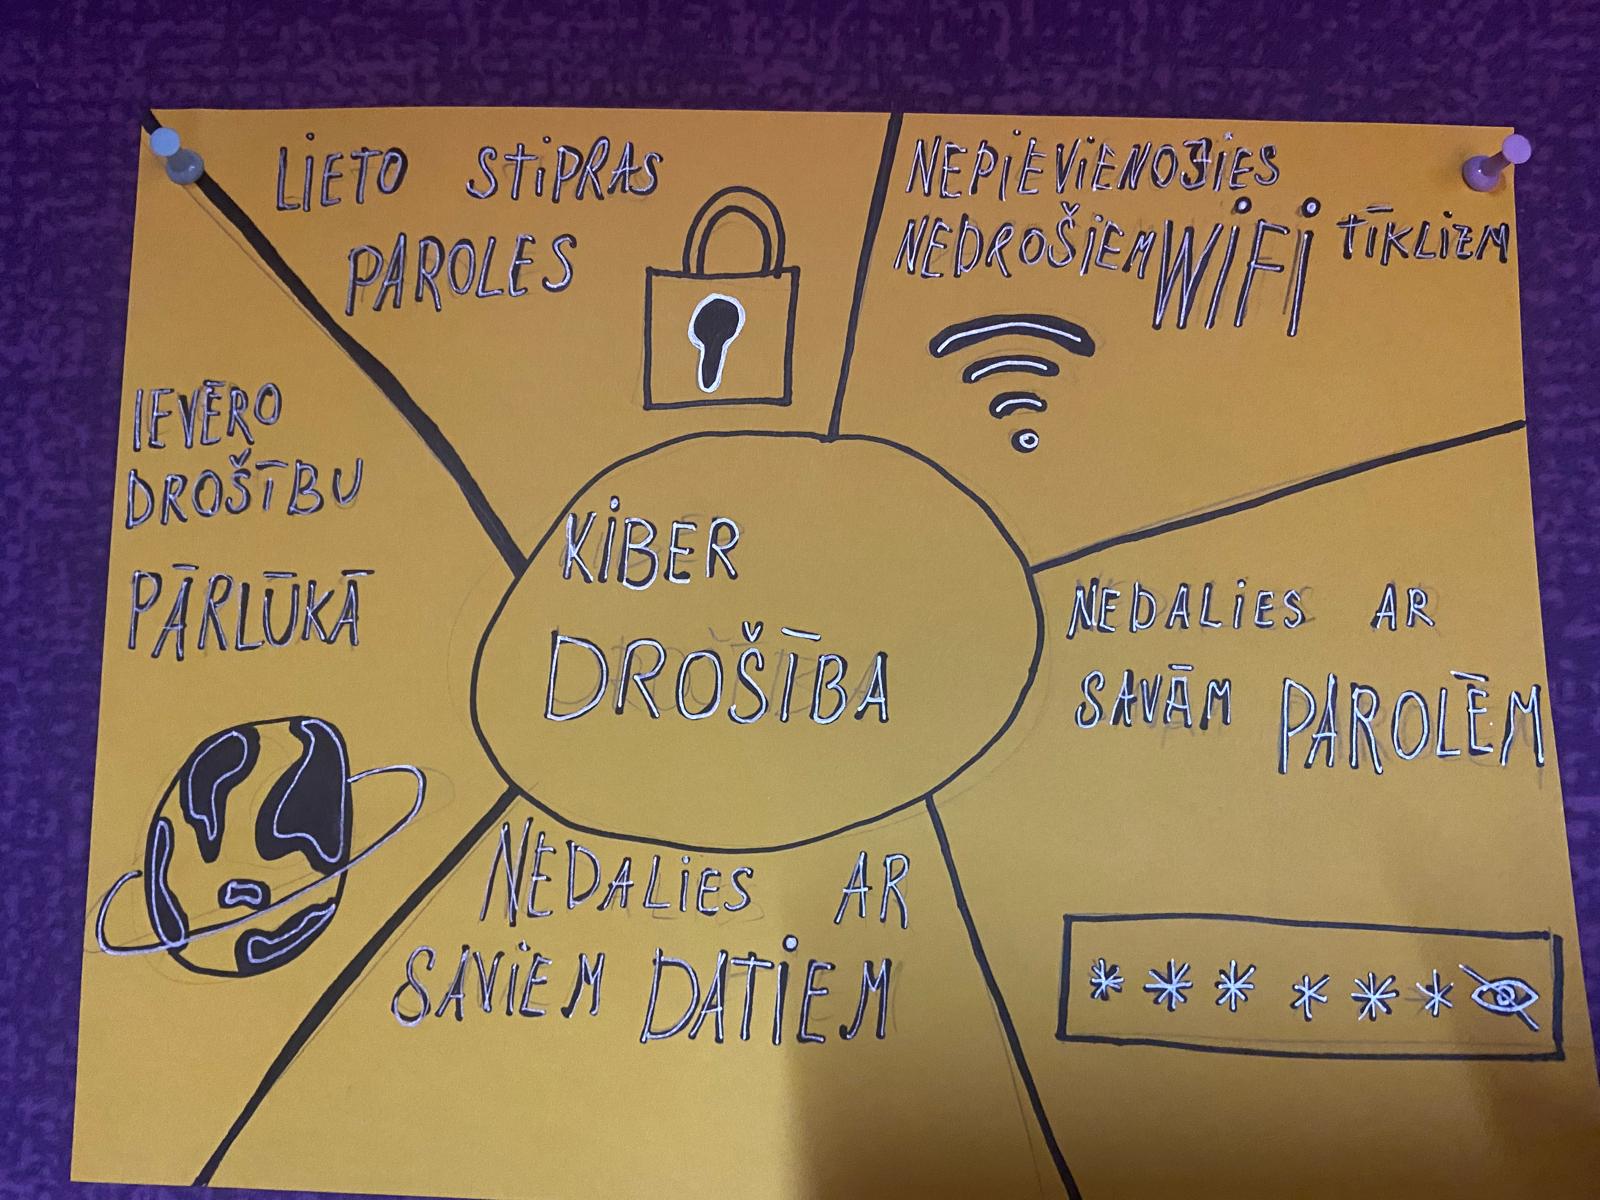 LIETO STIPRAS
PAROLES
NEPIEVIENOJIES
NEDROŠIEM WIFI TĪKLIEM
IEVĒRO
DROŠĪBU
PĀRLŪKĀ
KIBER
DROŠĪBA
NEDALIES AR
SAVĀM PAROLĒM
NEDALIES AR
SAVIEM DATIEM
******